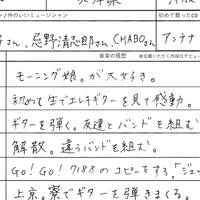 ン/仲のいいミュージシャン 初めて買ったCD
さん、忌野清志郎さん、CHABOさん アンテナ
音楽の履歴
モーニング娘。が大好き。
初めて生でエレキギターを見て感動。
ギターを弾く。友達とバンドを組む
解散。違うバンドを組む。
GO!GO!7188のコピーをする「ジェ
上京。寮でギターを弾きまくる。